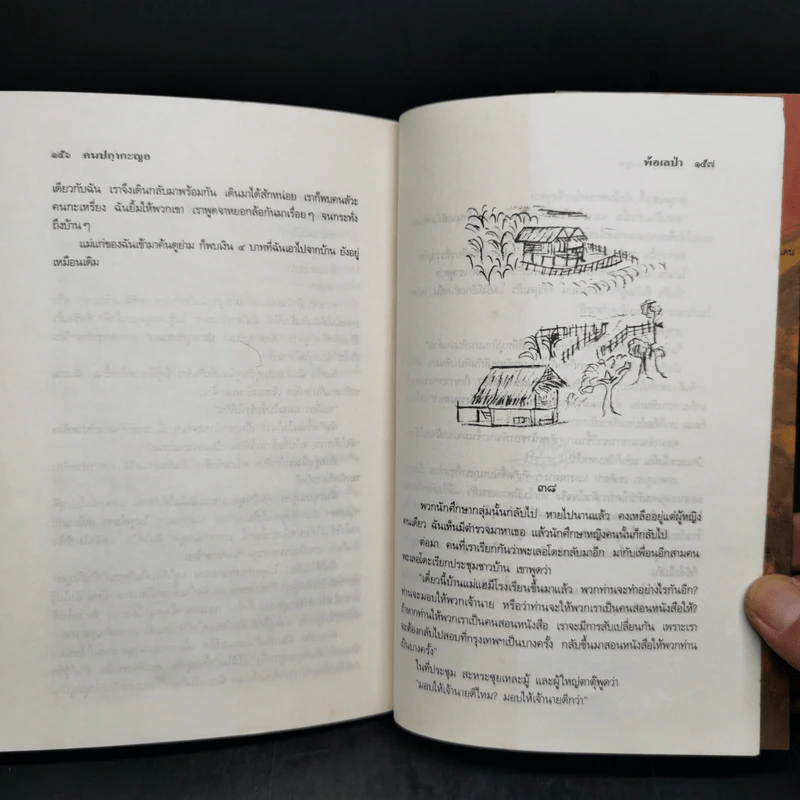 ๑๕๖ คนปกากะญอ
เดียวกับฉัน เราจึงเดินกลับมาพร้อมกัน เดินมาได้สักหน่อย เราก็พบคนลัวะ
คนกะเหรี่ยง ฉันยิ้มให้พวกเขา เราพูดจาหยอกล้อกันมาเรื่อยๆ จนกระทั่ง
ถึงบ้านๆ
แม่แก่ของฉันเข้ามาค้นดูย่าม ก็พบเงิน ๔ บาทที่ฉันเอาไปจากบ้าน ยังอยู่
เหมือนเดิม
พ้อเลป่า ๑๕๗
๓๘
พวกนักศึกษากลุ่มนั้นกลับไป หายไปนานแล้ว คงเหลืออยู่แต่ผู้หญิง
คนเดียว ฉันเห็นมีตำรวจมาหาเธอ แล้วนักศึกษาหญิงคนนั้นก็กลับไป
ต่อมา คนที่เราเรียกกันว่าพะเลอโดะกลับมาอีก มากับเพื่อนอีกสามคน
พะเลอโดะเรียกประชุมชาวบ้าน เขาพูดว่า
"เดี๋ยวนี้บ้านแม่แฮมีโรงเรียนขึ้นมาแล้ว พวกท่านจะทำอย่างไรกันอีก?
ท่านจะมอบให้พวกเจ้านาย หรือว่าท่านจะให้พวกเราเป็นคนสอนหนังสือให้?
ถ้าหากท่านให้พวกเราเป็นคนสอนหนังสือ เราจะมีการสับเปลี่ยนกัน เพราะเรา
จะต้องกลับไปสอบที่กรุงเทพฯเป็นบางครั้ง กลับขึ้นมาสอนหนังสือให้พวกท่าน
เป็นบางครั้ง"
ในที่ประชุม สะหระชุยเหละมู้ และผู้ใหญ่ตาตุ๊พูดว่า
"มอบให้เจ้านายดีไหม? มอบให้เจ้านายดีกว่า"